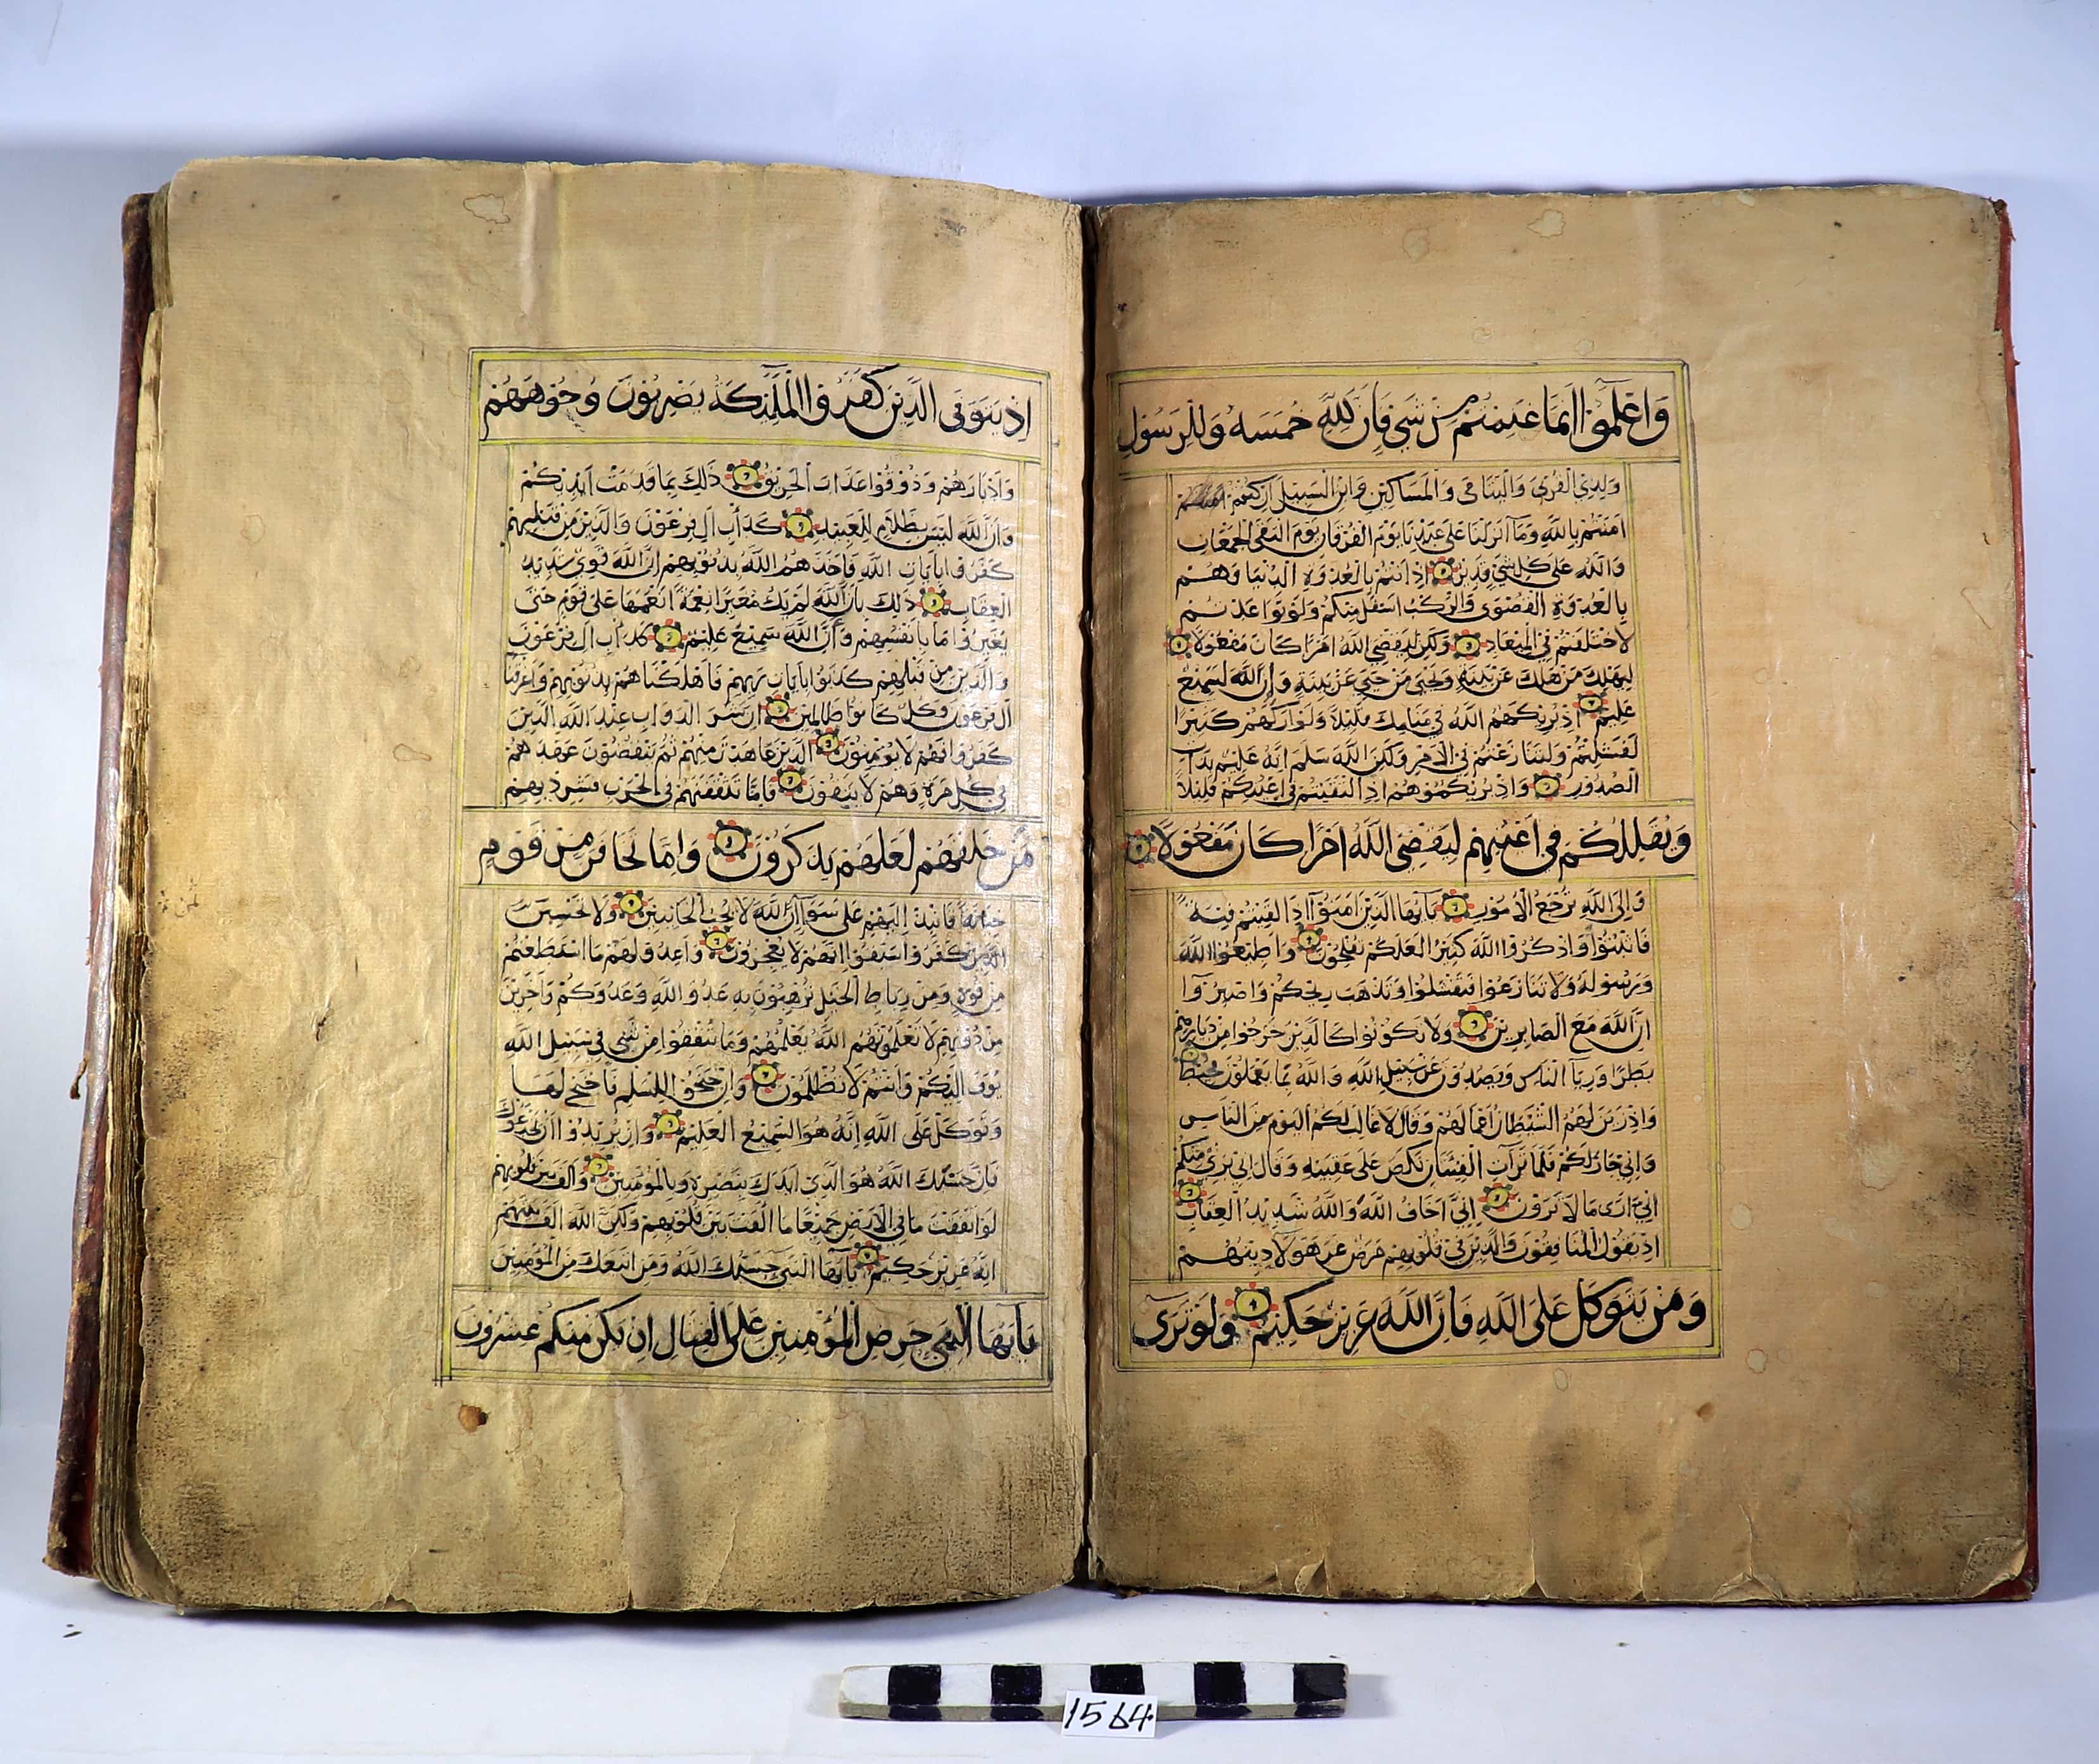 وَاعْلَمُوا اَنَّمَا غَنِمْتُمْ مِنْ شَيْءٍ فَاَنَّ لِلّٰهِ خُمُسَهُ وَلِلرَّسُوْلِ
وَلِذِي الْقُرْبٰى وَالْيَتَامٰى وَالْمَسَاكِيْنِ وَابْنِ السَّبِيْلِ اِنْ كُنْتُمْ
اٰمَنْتُمْ بِاللّٰهِ وَمَا اَنْزَلْنَا عَلٰى عَبْدِنَا يَوْمَ الْفُرْقَانِ يَوْمَ الْتَقَى الْجَمْعَانِ
وَاللّٰهُ عَلٰى كُلِّ شَيْءٍ قَدِيْرٌ اِذْ اَنْتُمْ بِالْعُدْوَةِ الدُّنْيَا وَهُمْ
بِالْعُدْوَةِ الْقُصْوٰى وَالرَّكْبُ اَسْفَلَ مِنْكُمْ وَلَوْ تَوَاعَدْتُمْ
لَاخْتَلَفْتُمْ فِي الْمِيْعَادِ وَلٰكِنْ لِيَقْضِيَ اللّٰهُ اَمْرًا كَانَ مَفْعُوْلًا
لِيَهْلِكَ مَنْ هَلَكَ عَنْ بَيِّنَةٍ وَيَحْيٰى مَنْ حَيَّ عَنْ بَيِّنَةٍ وَاِنَّ اللّٰهَ لَسَمِيْعٌ
عَلِيْمٌ اِذْ يُرِيْكَهُمُ اللّٰهُ فِيْ مَنَامِكَ قَلِيْلًا وَلَوْ اَرٰىكَهُمْ كَثِيْرًا
لَفَشِلْتُمْ وَلَتَنَازَعْتُمْ فِي الْاَمْرِ وَلٰكِنَّ اللّٰهَ سَلَّمَ اِنَّهُ عَلِيْمٌ بِذَاتِ
الصُّدُوْرِ وَاِذْ يُرِيْكُمُوْهُمْ اِذِ الْتَقَيْتُمْ فِيْ اَعْيُنِكُمْ قَلِيْلًا
وَيُقَلِّلُكُمْ فِيْ اَعْيُنِهِمْ لِيَقْضِيَ اللّٰهُ اَمْرًا كَانَ مَفْعُوْلًا
وَاِلَى اللّٰهِ تُرْجَعُ الْاُمُوْرُ يَا اَيُّهَا الَّذِيْنَ اٰمَنُوْا اِذَا لَقِيْتُمْ فِئَةً
فَاثْبُتُوْا وَاذْكُرُوا اللّٰهَ كَثِيْرًا لَعَلَّكُمْ تُفْلِحُوْنَ وَاَطِيْعُوا اللّٰهَ
وَرَسُوْلَهُ وَلَا تَنَازَعُوْا فَتَفْشَلُوْا وَتَذْهَبَ رِيْحُكُمْ وَاصْبِرُوْا
اِنَّ اللّٰهَ مَعَ الصَّابِرِيْنَ وَلَا تَكُوْنُوْا كَالَّذِيْنَ خَرَجُوْا مِنْ دِيَارِهِمْ
بَطَرًا وَرِئَاءَ النَّاسِ وَيَصُدُّوْنَ عَنْ سَبِيْلِ اللّٰهِ وَاللّٰهُ بِمَا يَعْمَلُوْنَ مُحِيْطٌ
وَاِذْ زَيَّنَ لَهُمُ الشَّيْطَانُ اَعْمَالَهُمْ وَقَالَ لَا غَالِبَ لَكُمُ الْيَوْمَ مِنَ النَّاسِ
وَاِنِّيْ جَارٌ لَكُمْ فَلَمَّا تَرَاءَتِ الْفِئَتَانِ نَكَصَ عَلٰى عَقِبَيْهِ وَقَالَ اِنِّيْ بَرِيْءٌ مِنْكُمْ
اِنِّيْ اَرٰى مَا لَا تَرَوْنَ اِنِّيْ اَخَافُ اللّٰهَ وَاللّٰهُ شَدِيْدُ الْعِقَابِ
اِذْ يَقُوْلُ الْمُنَافِقُوْنَ وَالَّذِيْنَ فِيْ قُلُوْبِهِمْ مَرَضٌ غَرَّ هٰؤُلَاءِ دِيْنُهُمْ
وَمَنْ يَتَوَكَّلْ عَلَى اللّٰهِ فَاِنَّ اللّٰهَ عَزِيْزٌ حَكِيْمٌ وَلَوْ تَرٰى
اِذْ يَتَوَفَّى الَّذِيْنَ كَفَرُوا الْمَلٰئِكَةُ يَضْرِبُوْنَ وُجُوْهَهُمْ
وَاَدْبَارَهُمْ وَذُوْقُوْا عَذَابَ الْحَرِيْقِ ذٰلِكَ بِمَا قَدَّمَتْ اَيْدِيْكُمْ
وَاَنَّ اللّٰهَ لَيْسَ بِظَلَّامٍ لِلْعَبِيْدِ كَدَأْبِ اٰلِ فِرْعَوْنَ وَالَّذِيْنَ مِنْ قَبْلِهِمْ
كَفَرُوْا بِاٰيَاتِ اللّٰهِ فَاَخَذَهُمُ اللّٰهُ بِذُنُوْبِهِمْ اِنَّ اللّٰهَ قَوِيٌّ شَدِيْدُ
الْعِقَابِ ذٰلِكَ بِاَنَّ اللّٰهَ لَمْ يَكُ مُغَيِّرًا نِعْمَةً اَنْعَمَهَا عَلٰى قَوْمٍ حَتّٰى
يُغَيِّرُوْا مَا بِاَنْفُسِهِمْ وَاَنَّ اللّٰهَ سَمِيْعٌ عَلِيْمٌ كَدَأْبِ اٰلِ فِرْعَوْنَ
وَالَّذِيْنَ مِنْ قَبْلِهِمْ كَذَّبُوْا بِاٰيَاتِ رَبِّهِمْ فَاَهْلَكْنَاهُمْ بِذُنُوْبِهِمْ وَاَغْرَقْنَا
اٰلَ فِرْعَوْنَ وَكُلٌّ كَانُوْا ظَالِمِيْنَ اِنَّ شَرَّ الدَّوَابِّ عِنْدَ اللّٰهِ الَّذِيْنَ
كَفَرُوْا فَهُمْ لَا يُؤْمِنُوْنَ الَّذِيْنَ عَاهَدْتَ مِنْهُمْ ثُمَّ يَنْقُضُوْنَ عَهْدَهُمْ
فِيْ كُلِّ مَرَّةٍ وَهُمْ لَا يَتَّقُوْنَ فَاِمَّا تَثْقَفَنَّهُمْ فِي الْحَرْبِ فَشَرِّدْ بِهِمْ
مَنْ خَلْفَهُمْ لَعَلَّهُمْ يَذَّكَّرُوْنَ وَاِمَّا تَخَافَنَّ مِنْ قَوْمٍ
خِيَانَةً فَانْبِذْ اِلَيْهِمْ عَلٰى سَوَاءٍ اِنَّ اللّٰهَ لَا يُحِبُّ الْخَائِنِيْنَ وَلَا تَحْسَبَنَّ
الَّذِيْنَ كَفَرُوْا سَبَقُوْا اِنَّهُمْ لَا يُعْجِزُوْنَ وَاَعِدُّوْا لَهُمْ مَا اسْتَطَعْتُمْ
مِنْ قُوَّةٍ وَمِنْ رِبَاطِ الْخَيْلِ تُرْهِبُوْنَ بِهِ عَدُوَّ اللّٰهِ وَعَدُوَّكُمْ وَاٰخَرِيْنَ
مِنْ دُوْنِهِمْ لَا تَعْلَمُوْنَهُمُ اللّٰهُ يَعْلَمُهُمْ وَمَا تُنْفِقُوْا مِنْ شَيْءٍ فِيْ سَبِيْلِ اللّٰهِ
يُوَفَّ اِلَيْكُمْ وَاَنْتُمْ لَا تُظْلَمُوْنَ وَاِنْ جَنَحُوْا لِلسَّلْمِ فَاجْنَحْ لَهَا
وَتَوَكَّلْ عَلَى اللّٰهِ اِنَّهُ هُوَ السَّمِيْعُ الْعَلِيْمُ وَاِنْ يُرِيْدُوْا اَنْ يَخْدَعُوْكَ
فَاِنَّ حَسْبَكَ اللّٰهُ هُوَ الَّذِيْ اَيَّدَكَ بِنَصْرِهِ وَبِالْمُؤْمِنِيْنَ وَاَلَّفَ بَيْنَ قُلُوْبِهِمْ
لَوْ اَنْفَقْتَ مَا فِي الْاَرْضِ جَمِيْعًا مَا اَلَّفْتَ بَيْنَ قُلُوْبِهِمْ وَلٰكِنَّ اللّٰهَ اَلَّفَ بَيْنَهُمْ
اِنَّهُ عَزِيْزٌ حَكِيْمٌ يَا اَيُّهَا النَّبِيُّ حَسْبُكَ اللّٰهُ وَمَنِ اتَّبَعَكَ مِنَ الْمُؤْمِنِيْنَ
يَا اَيُّهَا النَّبِيُّ حَرِّضِ الْمُؤْمِنِيْنَ عَلَى الْقِتَالِ اِنْ يَكُنْ مِنْكُمْ عِشْرُوْنَ
1564